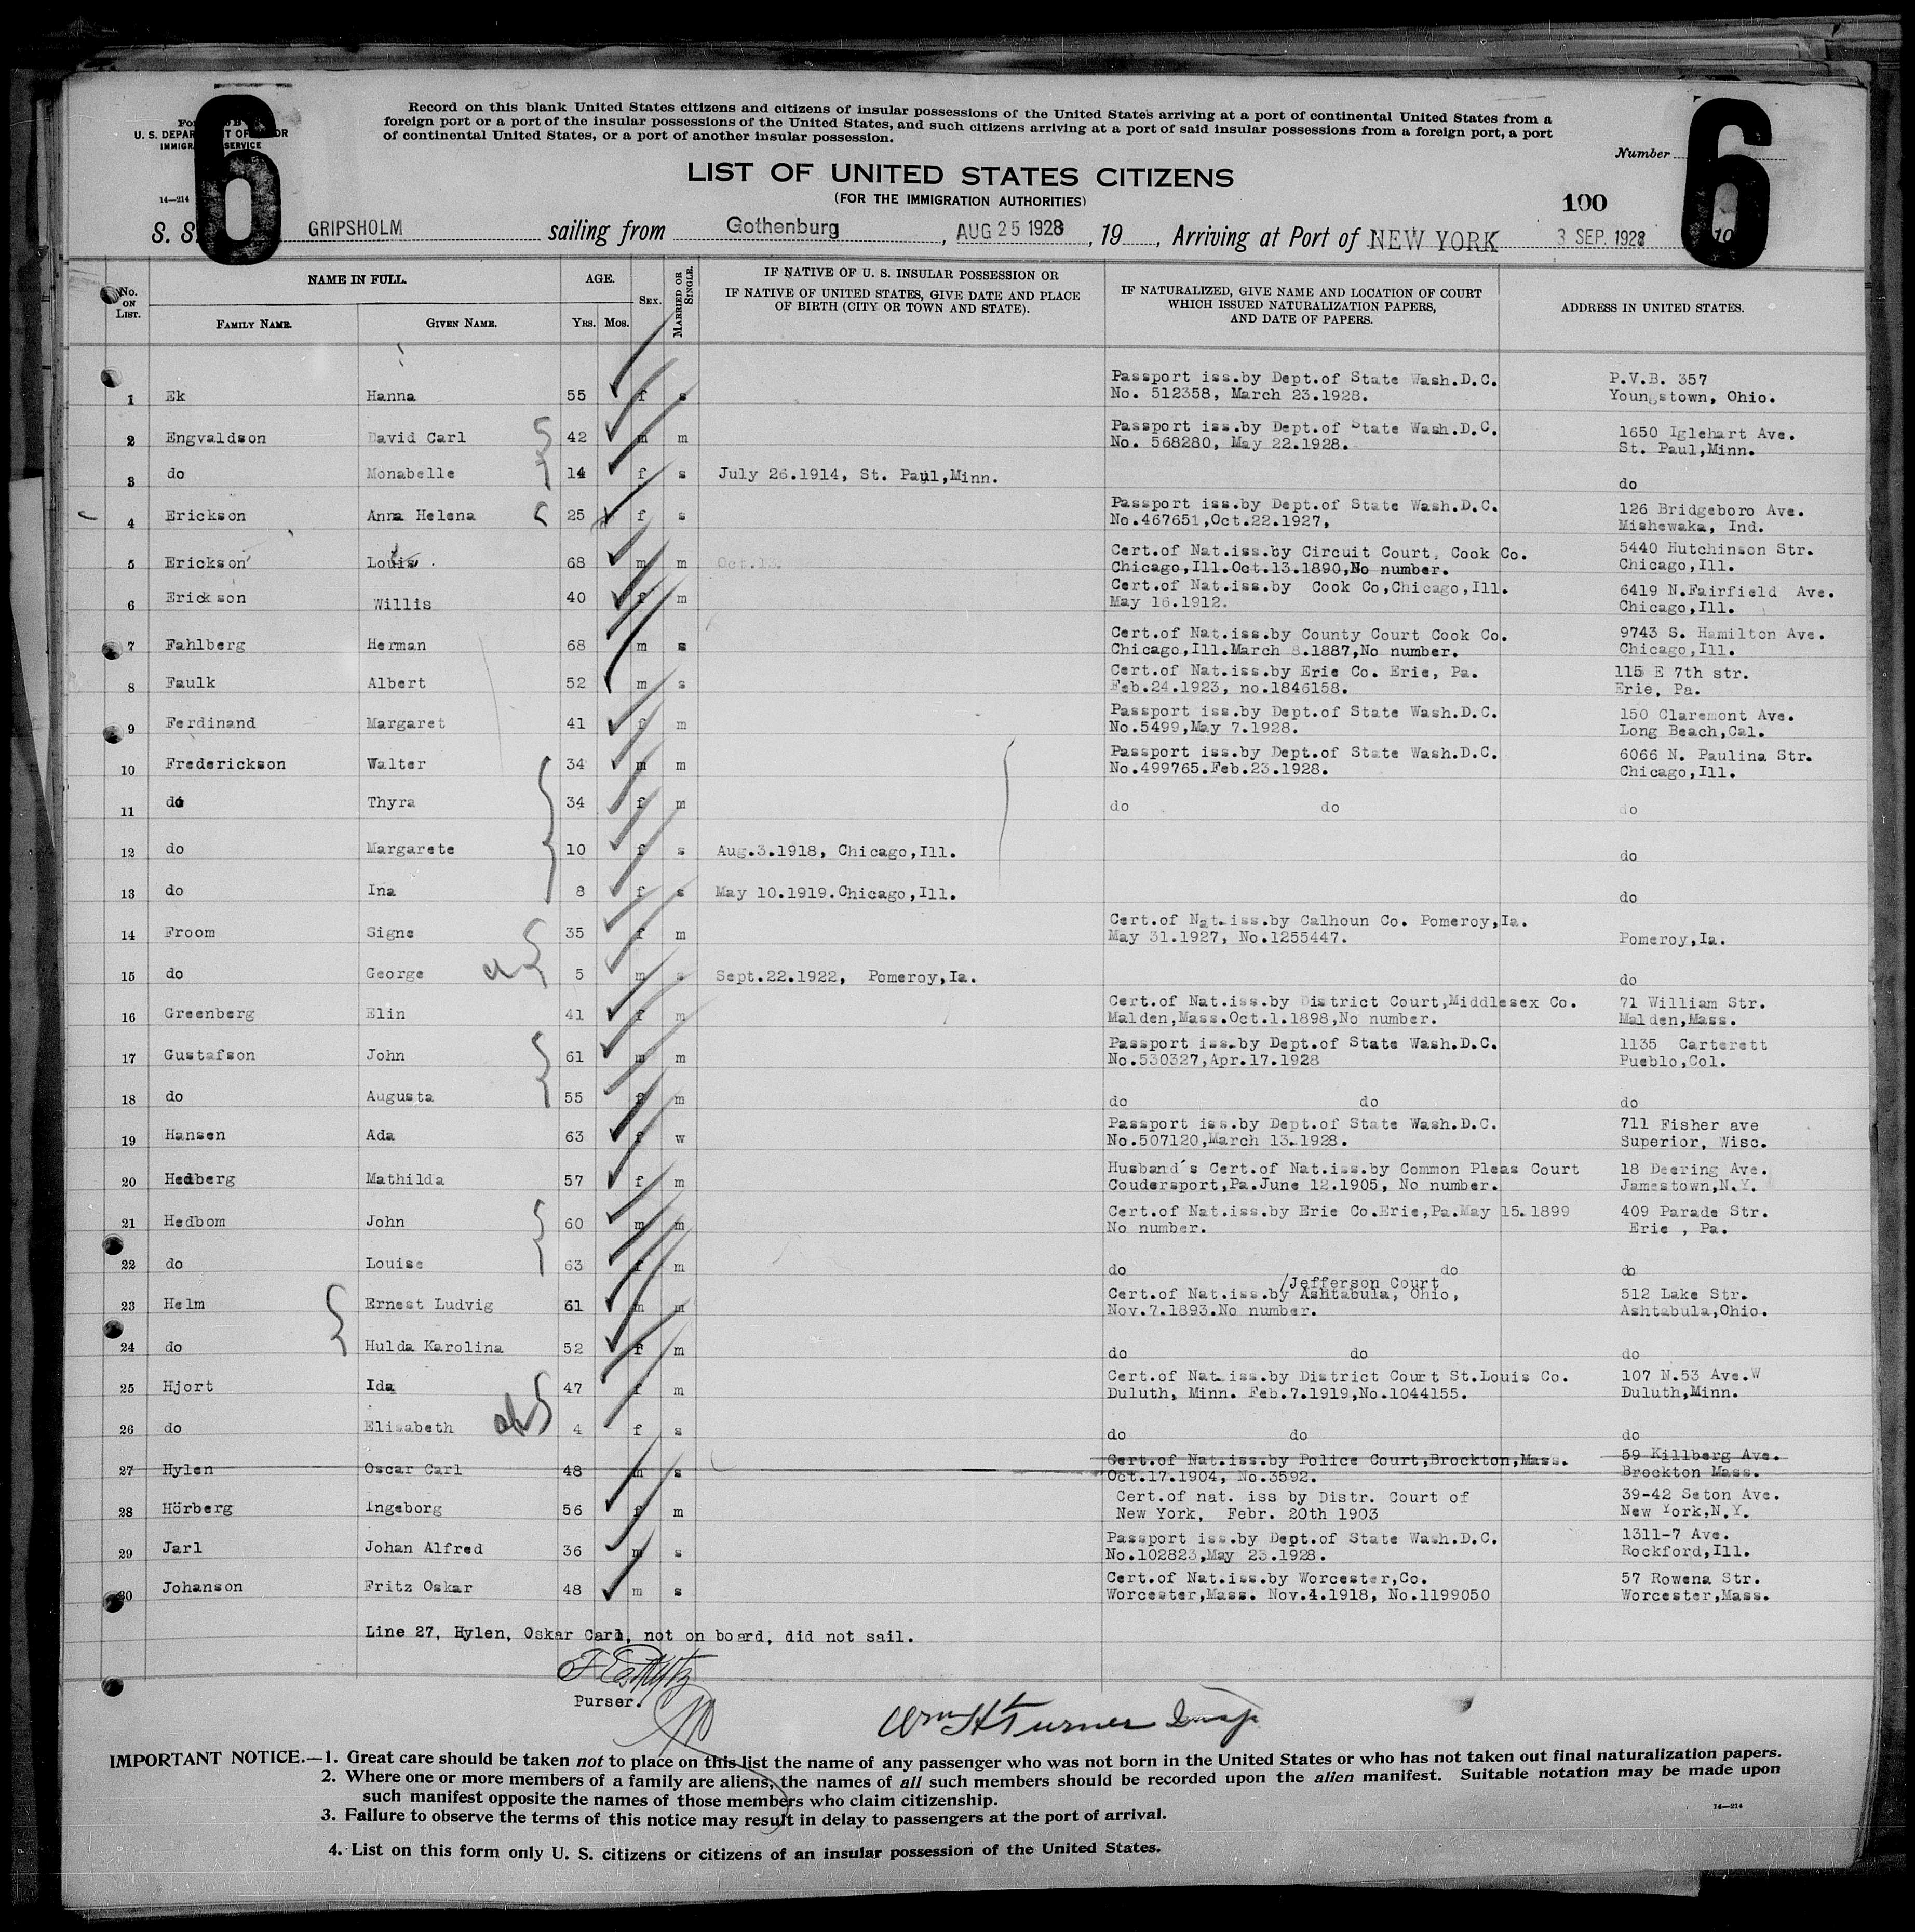 6
6
Record on this blank United States citizens and citizens of insular possessions of the United States arriving at a port of continental United States from a
foreign port or a port of the insular possessions of the United States, and such citizens arriving at a port of said insular possessions from a foreign port, a port
of continental United States, or a port of another insular possession.
U. S. DEPAR OF OR
IMMIGRA SERVICE
Number
14—214
LIST OF UNITED STATES CITIZENS
(FOR THE IMMIGRATION AUTHORITIES)
100
S. S. GRIPSHOLM sailing from Gothenburg, AUG 25 1928, 19 , Arriving at Port of NEW YORK 3 SEP. 1928
No. ON LIST. NAME IN FULL. AGE. SEX. MARRIED OR SINGLE. IF NATIVE OF U. S. INSULAR POSSESSION OR
IF NATIVE OF UNITED STATES, GIVE DATE AND PLACE
OF BIRTH (CITY OR TOWN AND STATE). IF NATURALIZED, GIVE NAME AND LOCATION OF COURT
WHICH ISSUED NATURALIZATION PAPERS,
AND DATE OF PAPERS. ADDRESS IN UNITED STATES.
FAMILY NAME. GIVEN NAME. YRS. MOS.
1 Ek Hanna 55 f s Passport iss.by Dept.of State Wash.D.C. P.V.B. 357
No. 512358, March 23.1928. Youngstown, Ohio.
2 Engvaldson David Carl 42 m m Passport iss.by Dept.of State Wash.D.C. 1650 Iglehart Ave.
No. 568280, May 22.1928. St. Paul,Minn.
3 do Monabelle 14 f s July 26.1914, St. Paul,Minn. do
4 Erickson Anna Helena 25 f s Passport iss.by Dept.of State Wash.D.C. 126 Bridgeboro Ave.
No.467651,Oct.22.1927, Mishewaka, Ind.
5 Erickson Louis 68 m m Oct.13. Cert.of Nat.iss.by Circuit Court, Cook Co. 5440 Hutchinson Str.
Chicago,Ill.Oct.13.1890,No number. Chicago,Ill.
6 Erickson Willis 40 f m Cert.of Nat.iss.by Cook Co,Chicago,Ill. 6419 N.Fairfield Ave.
May 16.1912. Chicago,Ill.
7 Fahlberg Herman 68 m s Cert.of Nat.iss.by County Court Cook Co. 9743 S. Hamilton Ave.
Chicago,Ill.March 8.1887,No number. Chicago,Ill.
8 Faulk Albert 52 m s Cert.of Nat.iss.by Erie Co. Erie, Pa. 115 E 7th str.
Feb.24.1923, no.1846158. Erie, Pa.
9 Ferdinand Margaret 41 f m Passport iss.by Dept.of State Wash.D.C. 150 Claremont Ave.
No.5499,May 7.1928. Long Beach,Cal.
10 Frederickson Walter 34 m m Passport iss.by Dept.of State Wash.D.C. 6066 N. Paulina Str.
No.499765.Feb.23.1928. Chicago,Ill.
11 do Thyra 34 f m do do do
12 do Margarete 10 f s Aug.3.1918, Chicago,Ill. do
13 do Ina 8 f s May 10.1919.Chicago,Ill. do
14 Froom Signe 35 f m Cert.of Nat.iss.by Calhoun Co. Pomeroy,Ia.
May 31.1927, No.1255447. Pomeroy,Ia.
15 do George 5 m s Sept.22.1922, Pomeroy,Ia. do
16 Greenberg Elin 41 f m Cert.of Nat.iss.by District Court,Middlesex Co. 71 William Str.
Malden,Mass.Oct.1.1898,No number. Malden,Mass.
17 Gustafson John 61 m m Passport iss.by Dept.of State Wash.D.C. 1135 Carterett
No.530327,Apr.17.1928 Pueblo,Col.
18 do Augusta 55 f m do do do
19 Hansen Ada 63 f w Passport iss.by Dept.of State Wash.D.C. 711 Fisher ave
No.507120,March 13.1928. Superior, Wisc.
20 Hedberg Mathilda 57 f m Husband's Cert.of Nat.iss.by Common Pleas Court 18 Deering Ave.
Coudersport,Pa.June 12.1905, No number. Jamestown,N.Y.
21 Hedbom John 60 m m Cert.of Nat.iss.by Erie Co.Erie,Pa.May 15.1899 409 Parade Str.
No number. Erie , Pa.
22 do Louise 63 f m do do do
/Jefferson Court
23 Helm Ernest Ludvig 61 m m Cert.of Nat.iss.by Ashtabula, Ohio, 512 Lake Str.
Nov.7.1893.No number. Ashtabula,Ohio.
24 do Hulda Karolina 52 f m do do do
25 Hjort Ida 47 f m Cert.of Nat.iss.by District Court St.Louis Co. 107 N.53 Ave.W
Duluth, Minn. Feb.7.1919,No.1044155. Duluth,Minn.
26 do Elisabeth 4 f s do do do
27 Hylen Oscar Carl 48 m s Cert.of Nat.iss.by Police Court,Brockton,Mass. 59 Killberg Ave.
Oct.17.1904, No.3592. Brockton Mass.
28 Hörberg Ingeborg 56 f m Cert.of nat. iss by Distr. Court of 39-42 Seton Ave.
New York, Febr. 20th 1903 New York,N.Y.
29 Jarl Johan Alfred 36 m s Passport iss.by Dept.of State Wash.D.C. 1311-7 Ave.
No.102823,May 23.1928. Rockford,Ill.
30 Johanson Fritz Oskar 48 m s Cert.of Nat.iss.by Worcester,Co. 57 Rowena Str.
Worcester,Mass. Nov.4.1918, No.1199050 Worcester,Mass.
Line 27, Hylen, Oskar Carl, not on board, did not sail.
Purser.
Wm H Turner Insp
IMPORTANT NOTICE.—1. Great care should be taken not to place on this list the name of any passenger who was not born in the United States or who has not taken out final naturalization papers.
2. Where one or more members of a family are aliens, the names of all such members should be recorded upon the alien manifest. Suitable notation may be made upon
such manifest opposite the names of those members who claim citizenship.
3. Failure to observe the terms of this notice may result in delay to passengers at the port of arrival.
14—214
4. List on this form only U. S. citizens or citizens of an insular possession of the United States.